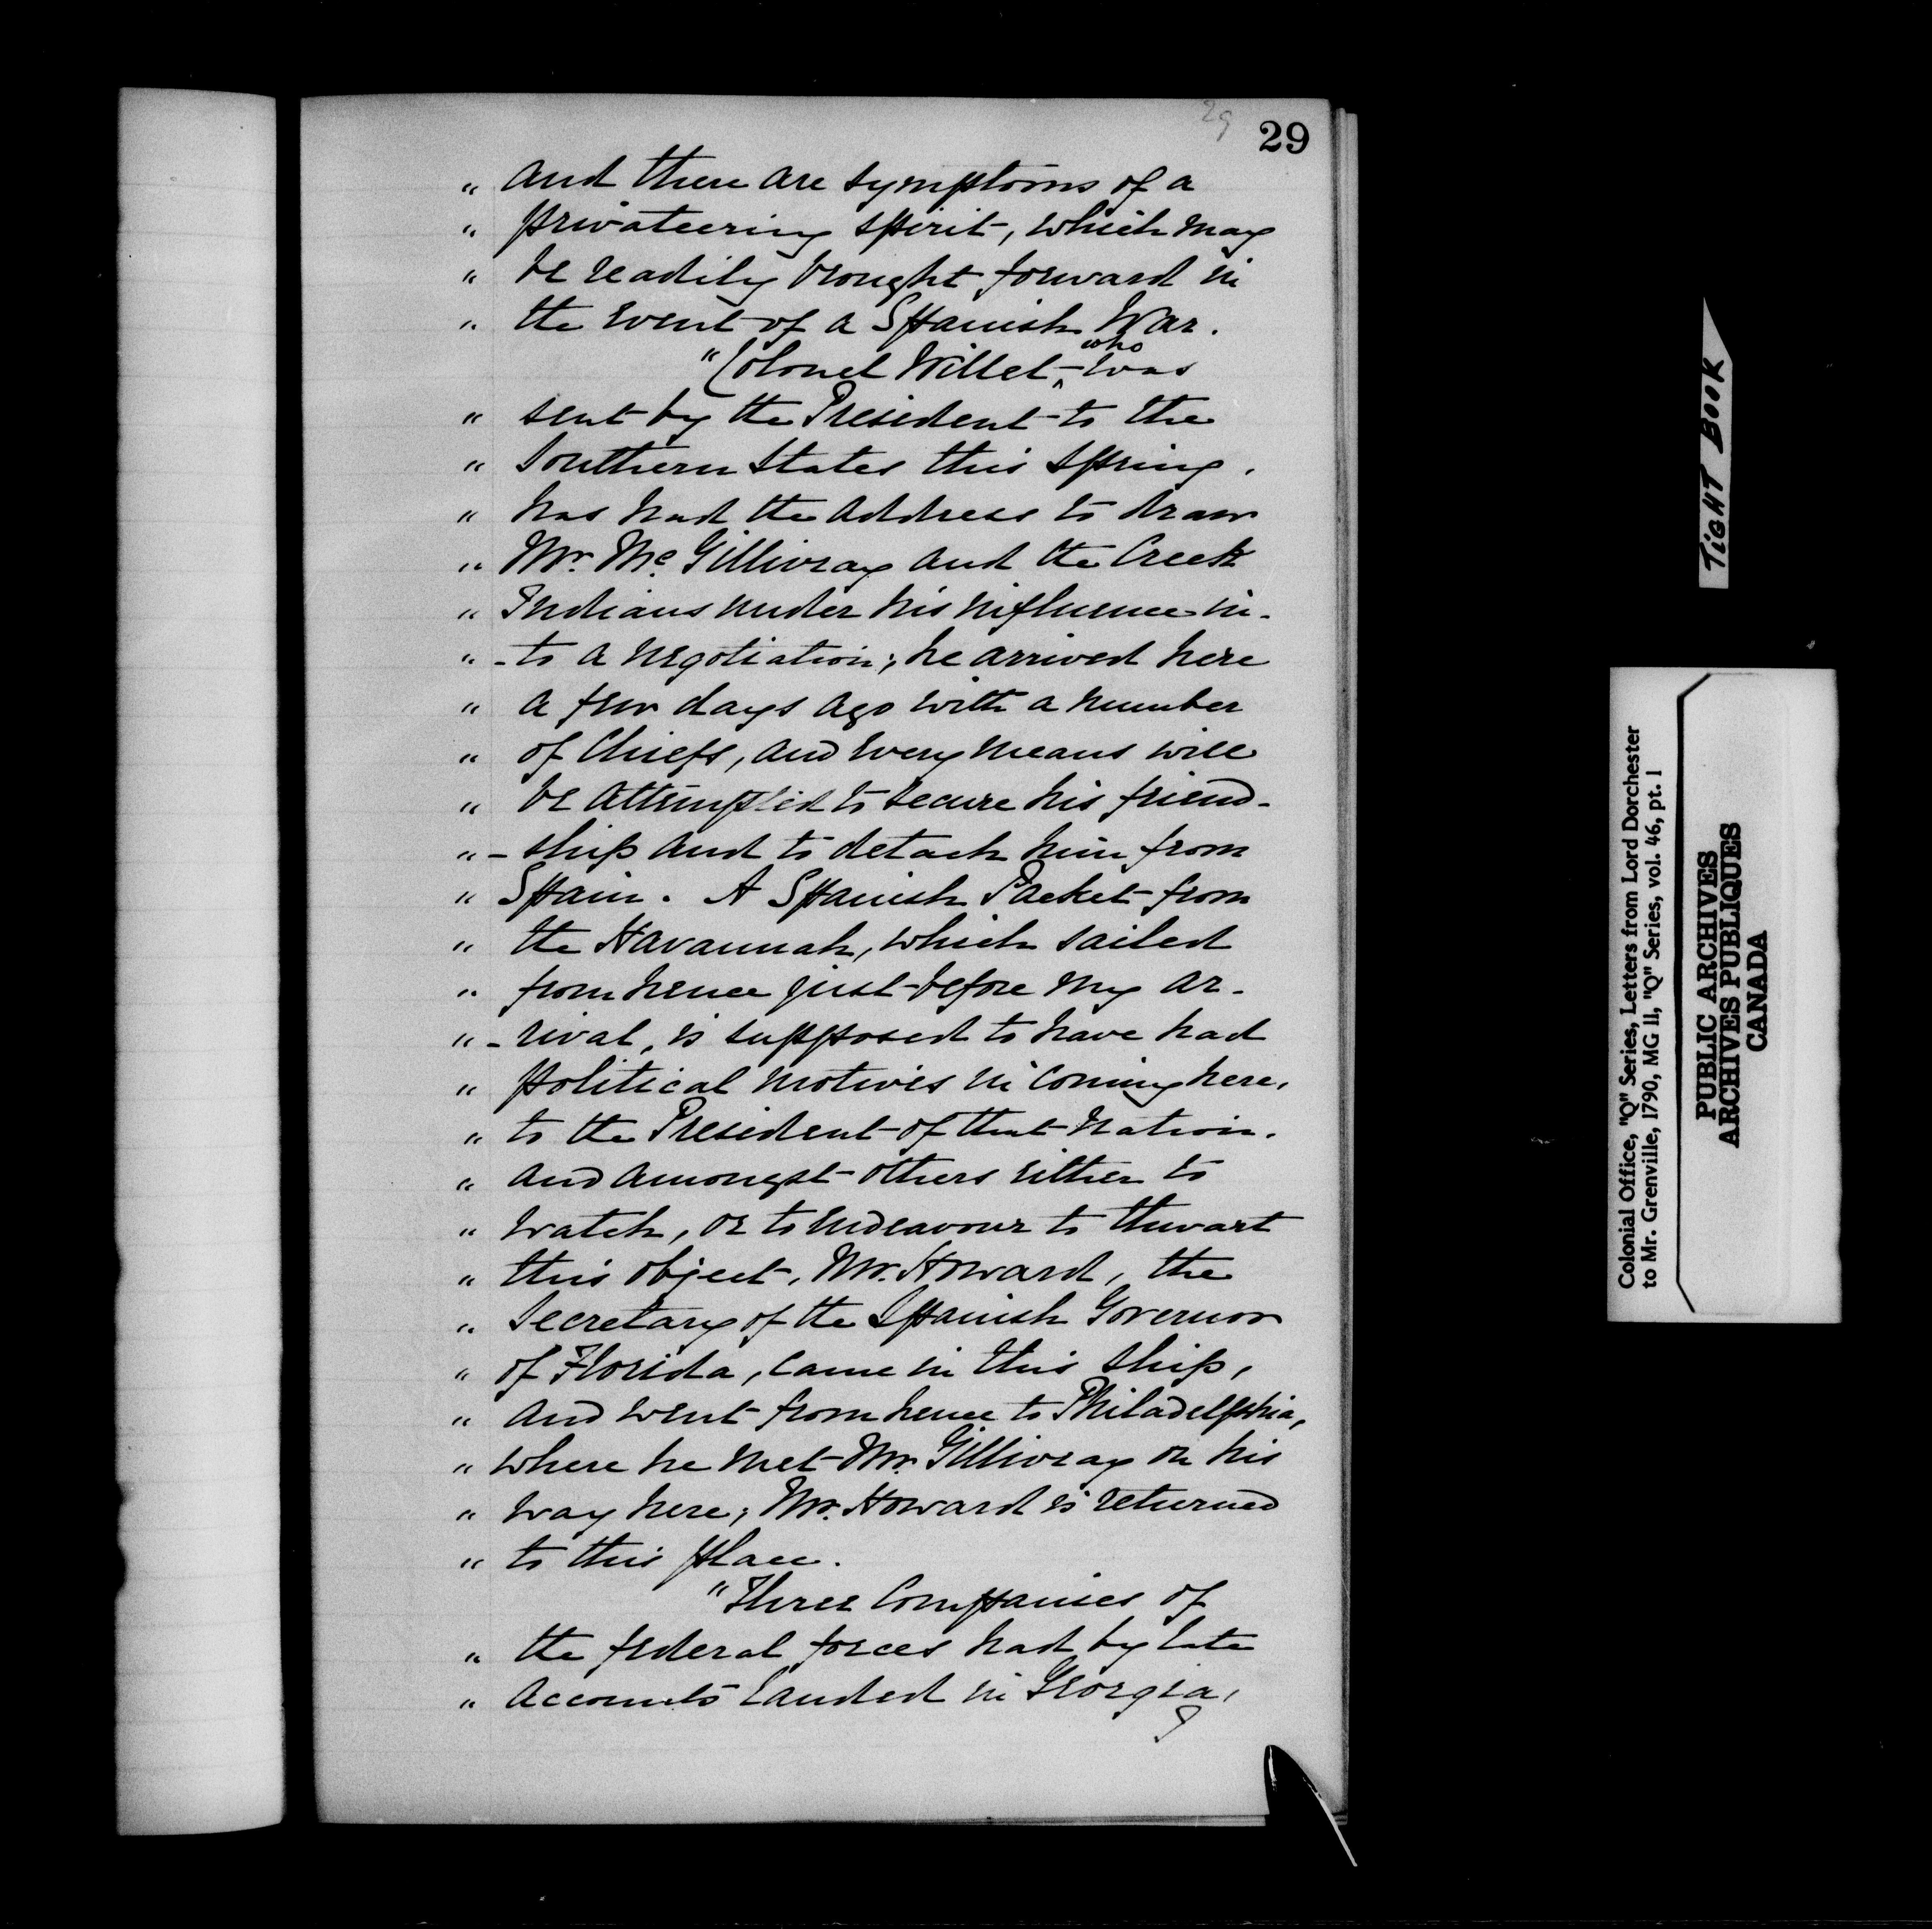 29
29
„ and there are symptoms of a
„ privateering spirit, which may
„ be readily brought forward in
„ the event of a Spanish War.
who
"Colonel Willet ‸ was
„ sent by the President to the
„ Southern States this spring,
„ has had the address to draw
„ Mr. Mc. Gillivray and the Creek
„ Indians under his influence in-
„ -to a negotiation; he arrived here
„ a few days ago with a number
„ of Chiefs, and every means will
„ be attempted to secure his friend-
„ -ship and to detach him from
„ Spain. A Spanish Packet from
„ the Havannah, which sailed
„ from hence just before my ar-
„ -rival, is supposed to have had
„ political motives in coming here,
„ to the President of that Nation.
„ and amongst others either to
„ watch, or to endeavour to thwart
„ this object, Mr. Howard, the
„ Secretary of the Spanish Governor
„ of Florida, came in this ship,
„ and went from hence to Philadelphia,
„ where he met Mr. Gillivray on his
„ way here; Mr. Howard is returned
„ to this place.
"Three Companies of
„ the federal forces had by late
„ accounts landed in Georgia,
TIGHT BOOK
Colonial Office, "Q" Series, Letters from Lord Dorchester
to Mr. Grenville, 1790, MG 11, "Q" Series, vol. 46, pt. 1
PUBLIC ARCHIVES
ARCHIVES PUBLIQUES
CANADA